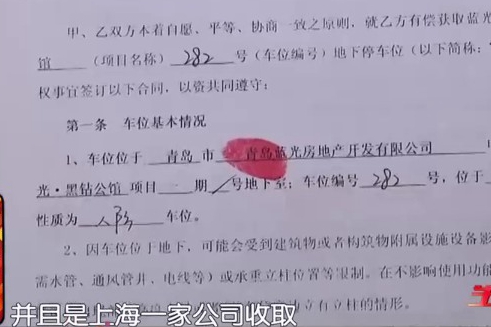 甲、乙双方本着自愿、平等、协商一致之原则，就乙方有偿获取蓝光
馆 （项目名称） 282 号（车位编号）地下停车位（以下简称：
权事宜签订以下合同，以资共同遵守：
第一条 车位基本情况
1、车位位于 青岛 市 青岛蓝光房地产开发有限公司
光·黑钻公馆 项目 一 期 / 号地下室；车位编号 282 号，位于
性质为 人防 车位。
2、因车位位于地下，可能会受到建筑物或者构筑物附属设施设备影
需水管、通风管井、电线等）或承重立柱位置等限制。在不影响使用功能
立有立柱的情形。
并且是上海一家公司收取